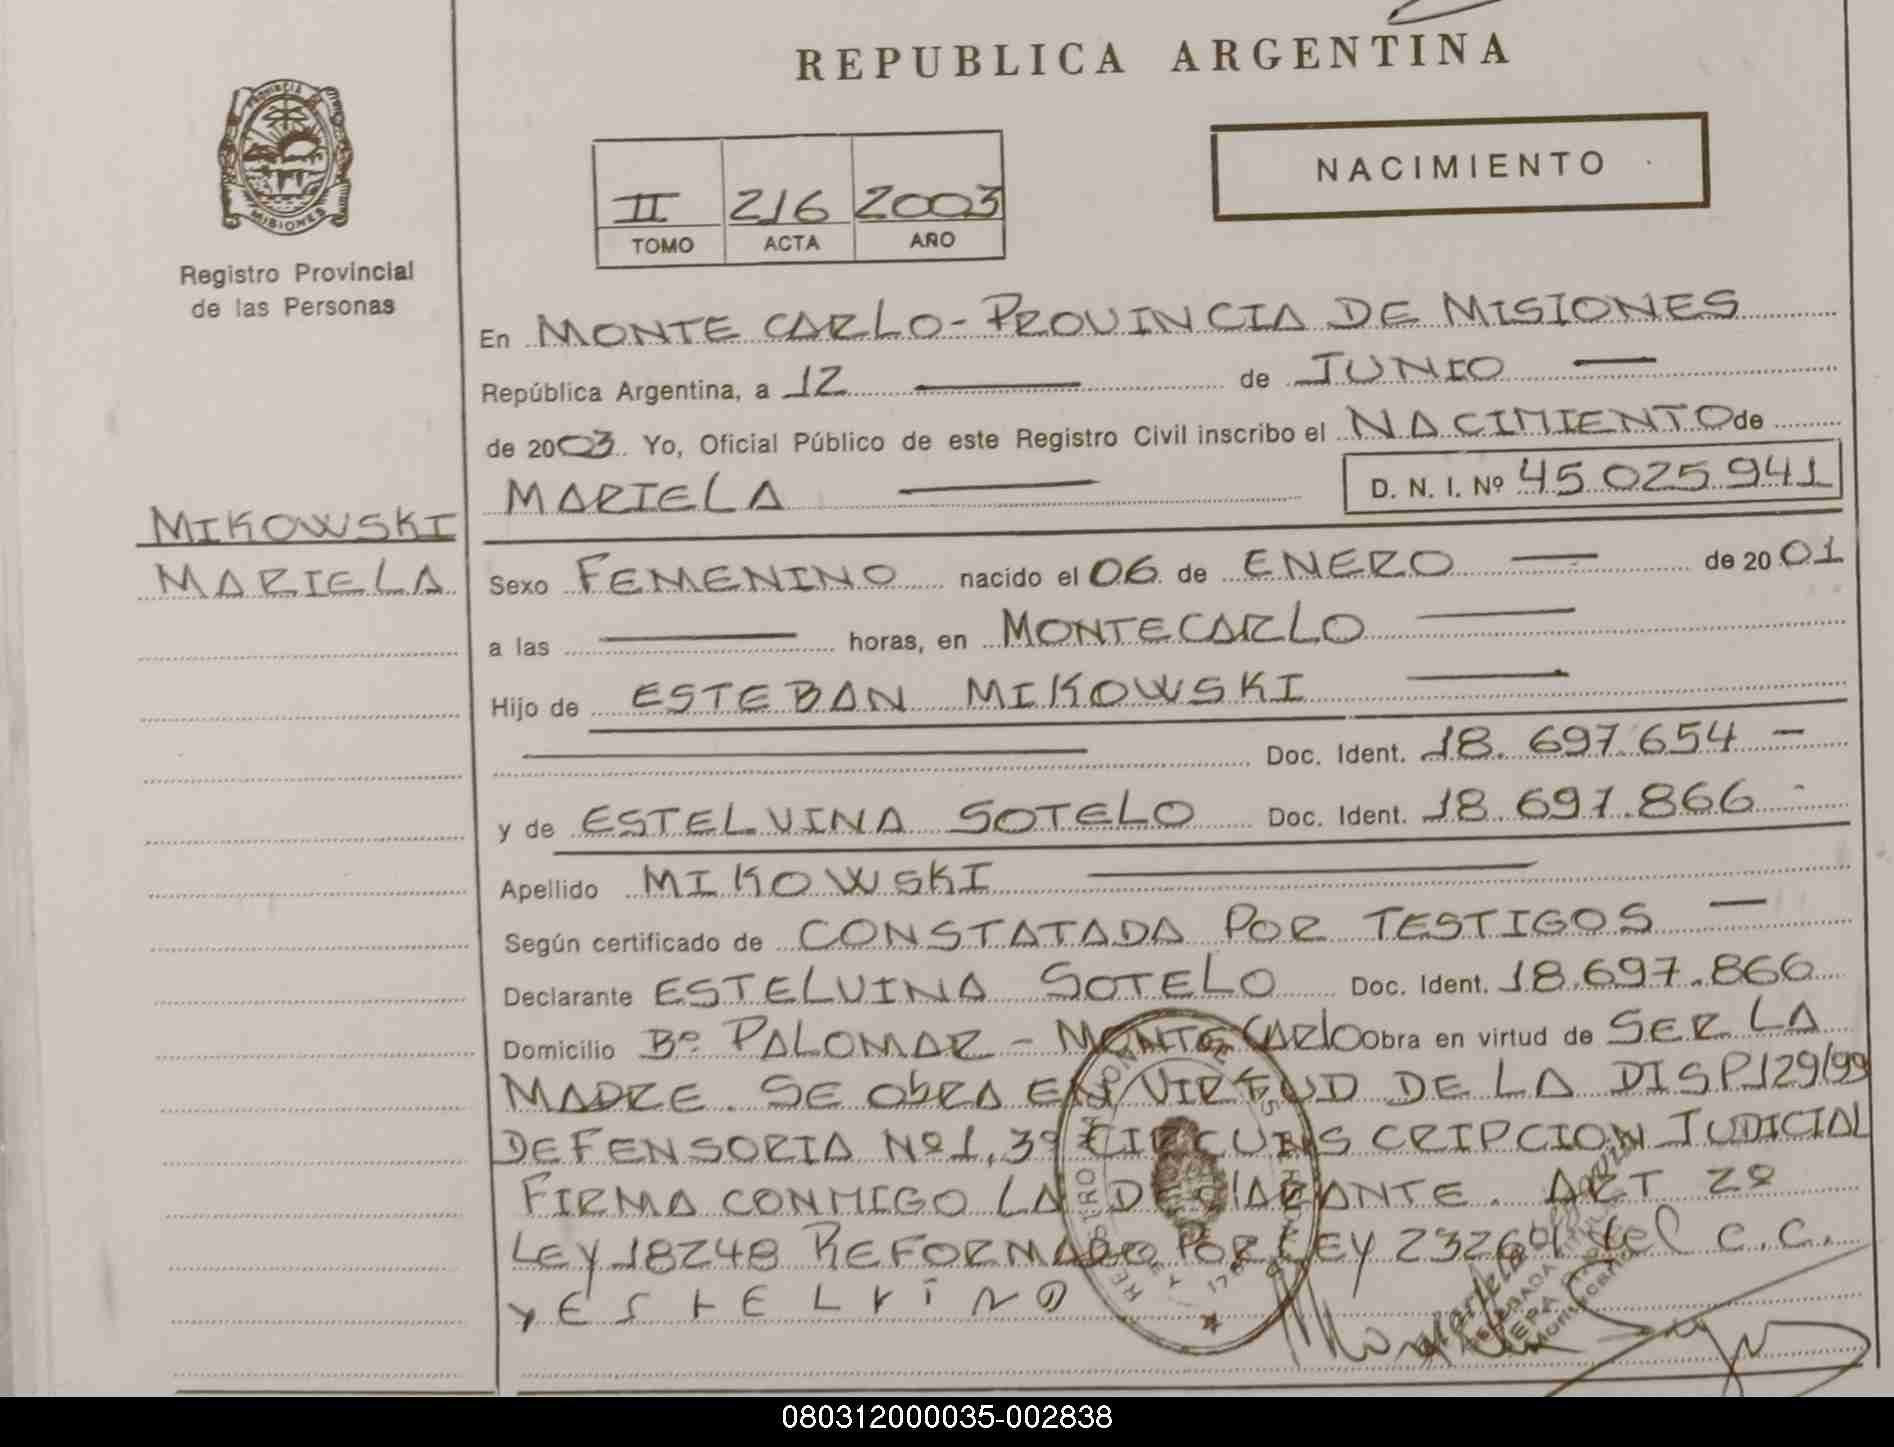 REPUBLICA ARGENTINA
PROVINCIA DE MISIONES
Registro Provincial
de las Personas
NACIMIENTO
II 216 2003
TOMO ACTA AÑO
En MONTE CARLO - PROVINCIA DE MISIONES
República Argentina, a 12 — de JUNIO —
de 2003 Yo, Oficial Público de este Registro Civil inscribo el NACIMIENTO de
MARIELA — D. N. I. Nº 45.025.941
MIKOWSKI
MARIELA
Sexo FEMENINO nacido el 06 de ENERO — de 2001
a las — horas, en MONTECARLO —
Hijo de ESTEBAN MIKOWSKI —
— Doc. Ident. 18.697.654 —
y de ESTELVINA SOTELO Doc. Ident. 18.697.866 -
Apellido MIKOWSKI —
Según certificado de CONSTATADA POR TESTIGOS —
Declarante ESTELVINA SOTELO Doc. Ident. 18.697.866
Domicilio Bº PALOMAR - MONTECARLO obra en virtud de SER LA
MADRE. SE ObRA EN VIRTUD DE LA DISP 129/99
DEFENSORIA Nº1, 3º CIRCUNSCRIPCION JUDICIAL
FIRMA CONMIGO LA DECLARANTE. ART 2º
LEY 18248 REFORMADO POR LEY 23264 del C.C.